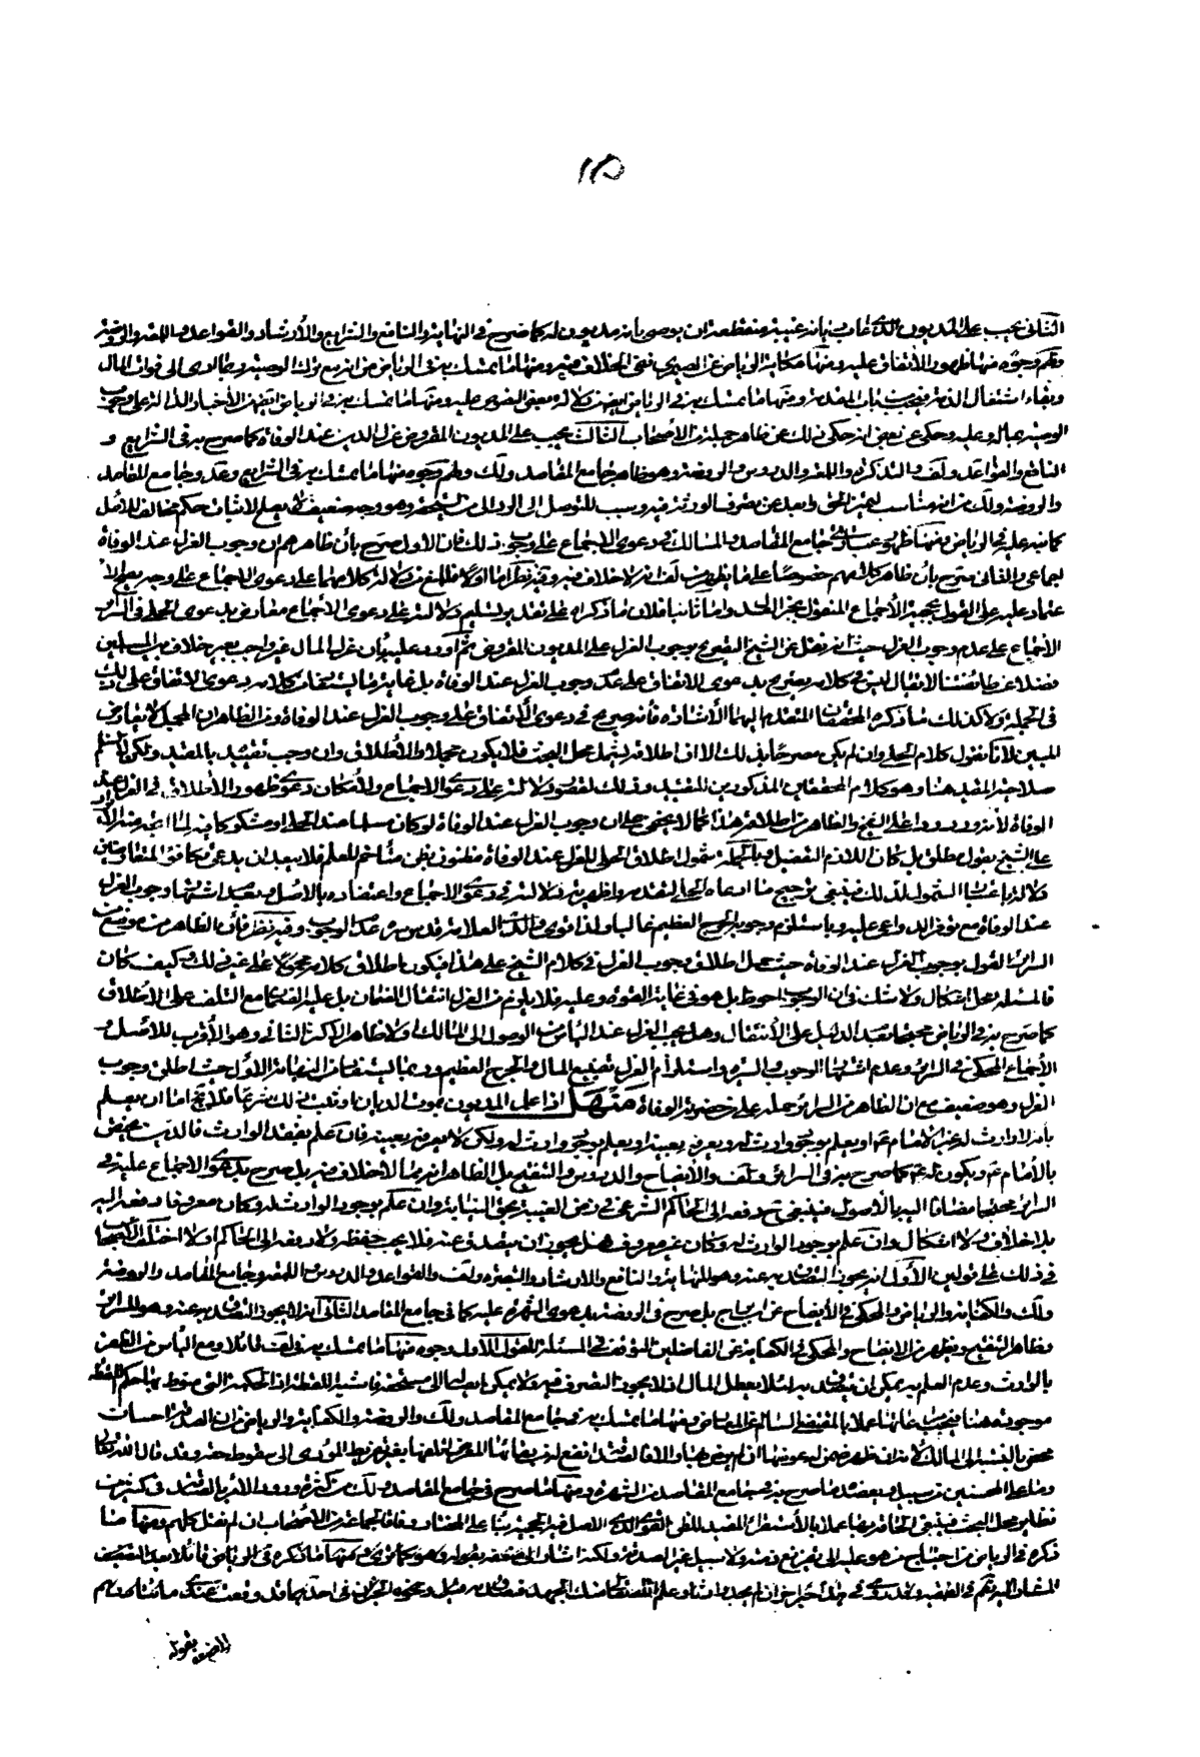 ١١٥
الثانى يجب على المديون الذى غاب دائنه غيبة منقطعة ان يوصى بانه مديون له كما صرح به فى النهاية والنافع والشرايع والأرشاد والقواعد واللمعة والروضة
ولهم وجوه منها ظهور الأتفاق عليه ومنها حكاية الرياض عن الصيمرى نفى الخلاف فيه ومنها ما تمسك به فى الرياض من انه مع ترك الوصية ربما ادى الى فوات المال
وبقاء اشتغال الذمة فيجب من باب المقدمة ومنها ما تمسك به فى الرياض ايضا من دلالة بعض النصوص عليه ومنها ما تمسك به فى الرياض ايضا من الأخبار الدالة على وجوب
الوصية بماله وعليه وحكى عن بعض انه حكى ذلك عن ظاهر جملة من الأصحاب الثالث يجب على المديون المفروض عزل الدين عند الوفاة كما صرح به فى الشرايع و
النافع والقواعد ولف والتذكرة واللمعة والدروس والروضة وهو ظاهر جامع المقاصد ولك ولهم وجوه منها ما تمسك به فى الشرايع وعد وجامع المقاصد
والروضة ولك من انه مناسب لتميز الحق وابعد عن تصرف الورثة فيه وسبب للتوصل الى الرد الى مستحقه وهو وجه ضعيف لا يصلح لاثبات حكم مخالف للأصل
كما نبه عليه فى الرياض ومنها ظهور عبارتى جامع المقاصد والمسالك فى دعوى الاجماع على وجوب ذلك فان الاول صرح بأن ظاهرهم ان وجوب العزل عند الوفاة
اجماعى والثانى صرح بأن ظاهر كلامهم خصوصا على ما يظهر من لف انه لا خلاف فيه وفيه نظر اما اولا فللمنع من دلالة كلامهما على دعوى الاجماع على وجه يصح الا
عتماد عليه على القول بحجية الأجماع المنقول بخبر الواحد واما ثانيا فلان ما ذكراه على تقدير تسليم دلالته على دعوى الأجماع معارض بدعوى الحلى فى السرائر
الأجماع على عدم وجوب العزل حيث انه نقل عن الشيخ التصريح بوجوب العزل على المديون المفروض ثم اورد عليه بأن عزل المال غير واجب بغير خلاف بين المسلمين
فضلا عن طائفتنا لا يقال ليس فى كلامه تصريح بدعوى الاتفاق على عدم وجوب العزل عند الوفاة بل غاية ما يستفاد من كلامه دعوى الاتفاق على ذلك
فى الجملة ولا كذلك ما ذكره المحققان المتقدم اليهما الأشارة فأنه صريح فى دعوى الأتفاق على وجوب العزل عند الوفاة ومن الظاهر ان المجمل لا يعارض
المبين لانا نقول كلام الحلى وان لم يكن مصرحا بذلك الا ان اطلاقه يشمل محل البحث فلا يكون مجملا والأطلاق وان وجب تقييده بالمقيد ولكن لا نسلم
صلاحية المقيد هنا وهو كلام المحققين المذكورين للتقييد وذلك لقصور دلالته على دعوى الاجماع
الوفاة
على الشيخ بقول مطلق بل كان اللازم التفصيل وبالجملة شمول اطلاق الحلى للعزل عند الوفاة مظنون بظن متاخم للعلم فلا يبعد ان يدعى تكافؤ المتعارضين
دلالة باعتبار الشمول لذلك فينبغى ترجيح ما ادعاه الحلى لتقدمه واظهريته دلالته فى دعوى الاجماع واعتضاده بالاصل وبعيد اشتهار وجوب العزل
عند الوفاة مع توفر الدواعى عليه وباستلزام وجوبه الحرج العظيم غالبا ولذا قوى والدى العلامة قدس سره عدم الوجوب وفيه نظر فأن الظاهر من موضع من
السرائر القول بوجوب العزل عند الوفاة حيث حمل اطلاق وجوب العزل فى كلام الشيخ على هذا فيكون اطلاق كلامه محمولا على غير ذلك وكيف كان
فالمسئلة محل اشكال ولا شك فى ان الوجوب احوط بل هو فى غاية القوة وعليه فلا يلزم من العزل انتقال الضمان بل عليه الضمان مع التلف على الأطلاق
كما صرح به فى الرياض محتجا بفقد الدليل على الأنتقال وهل يجب العزل عند اليأس من الوصول الى المالك او لا ظاهر الأكثر الثانى وهو الأقرب للاصل و
الأجماع المحكى فى السرائر وعدم اشتهار الوجوب والسيرة واستلزام العزل تضييع المال والحرج العظيم وربما يستفاد من النهاية الأول حيث اطلق وجوب
العزل وهو ضعيف مع ان الظاهر من السرائر حمله على خصوص الوفاة منهل اذا علم المديون بموت الديان او ثبت ذلك شرعا فلا يخ اما ان يعلم
بأنه لا وارث له غير الأمام ع او يعلم بوجود وارث له ويعرفه بعينه او يعلم بوجود وارث له ولكن لا يعرفه بعينه فان علم بفقد الوارث فالدين يختص
بالأمام ع ويكون له ع كما صرح به فى السرائر ولف والأيضاح والدروس والتنقيح بل الظاهر انه مما لا خلاف فيه بل صرح بدعوى الاجماع عليه فى
السرائر محتجا مضافا اليه بالاصول فينبغى ح دفعه الى الحاكم الشرعى فى زمن الغيبة بحق النيابة وان علم بوجود الوارث له وكان معروفا دفعه اليه
بلا خلاف ولا اشكال وان علم بوجود الوارث له وكان غير معروف فهل يجوز ان يتصدق عنه فلا يجب حفظه ولا دفعه الى الحاكم او لا اختلف الأصحاب
فى ذلك على قولين الأول انه يجوز التصدق به عنه وهو للنهاية والنافع والارشاد والتبصرة ولف والقواعد والدروس واللمعة وجامع المقاصد والروضة
ولك والكفاية والرياض والمحكى فى الأيضاح عن ابن البراج بل صرح فى الروضة بدعوى الشهرة عليه كما فى جامع المقاصد الثانى انه لا يجوز التصدق به عنه وهو للسرائر
وظاهر التنقيح ويظهر من الايضاح والمحكى فى الكفاية عن الفاضلين التوقف فى المسئلة للقول الأول وجوه منها ما تمسك به فى لف قائلا ومع اليأس من الظفر
بالوارث وعدم العلم به يمكن ان يتصدق به لئلا يعطل المال اذ لا يجوز التصرف فيه ولا يمكن ايصاله الى مستحقه فاشبه اللقطة اذ الحكمة التى منوط بها حكم اللقطة
موجودة هنا فيجب
محض بالنسبة الى المالك
وما على المحسنين من سبيل ويعضده ما صرح به فى جامع المقاصد من الشهرة ومنها ما صرح به فى جامع المقاصد ولك من كثرة ورود الأمر بالتصدق فى كثير من
نظاير محل البحث فينبغى الحاقه بها عملا بالأستقراء المفيد للظن القوى الذى الاصل فيه الحجية بناء على المختار وفاقا لجماعة من الأصحاب ان لم نقل كلهم ومنها ما
ذكره فى الرياض من احتياج من هو عليه الى تفريغ ذمته ولا سبيل غير الصدقة ولكنه اشار الى ضعفه بقوله وهو كما ترى ومنها ما ذكره فى الرياض قائلا بعد التضعيف
المشار اليه
المرضى بقوله